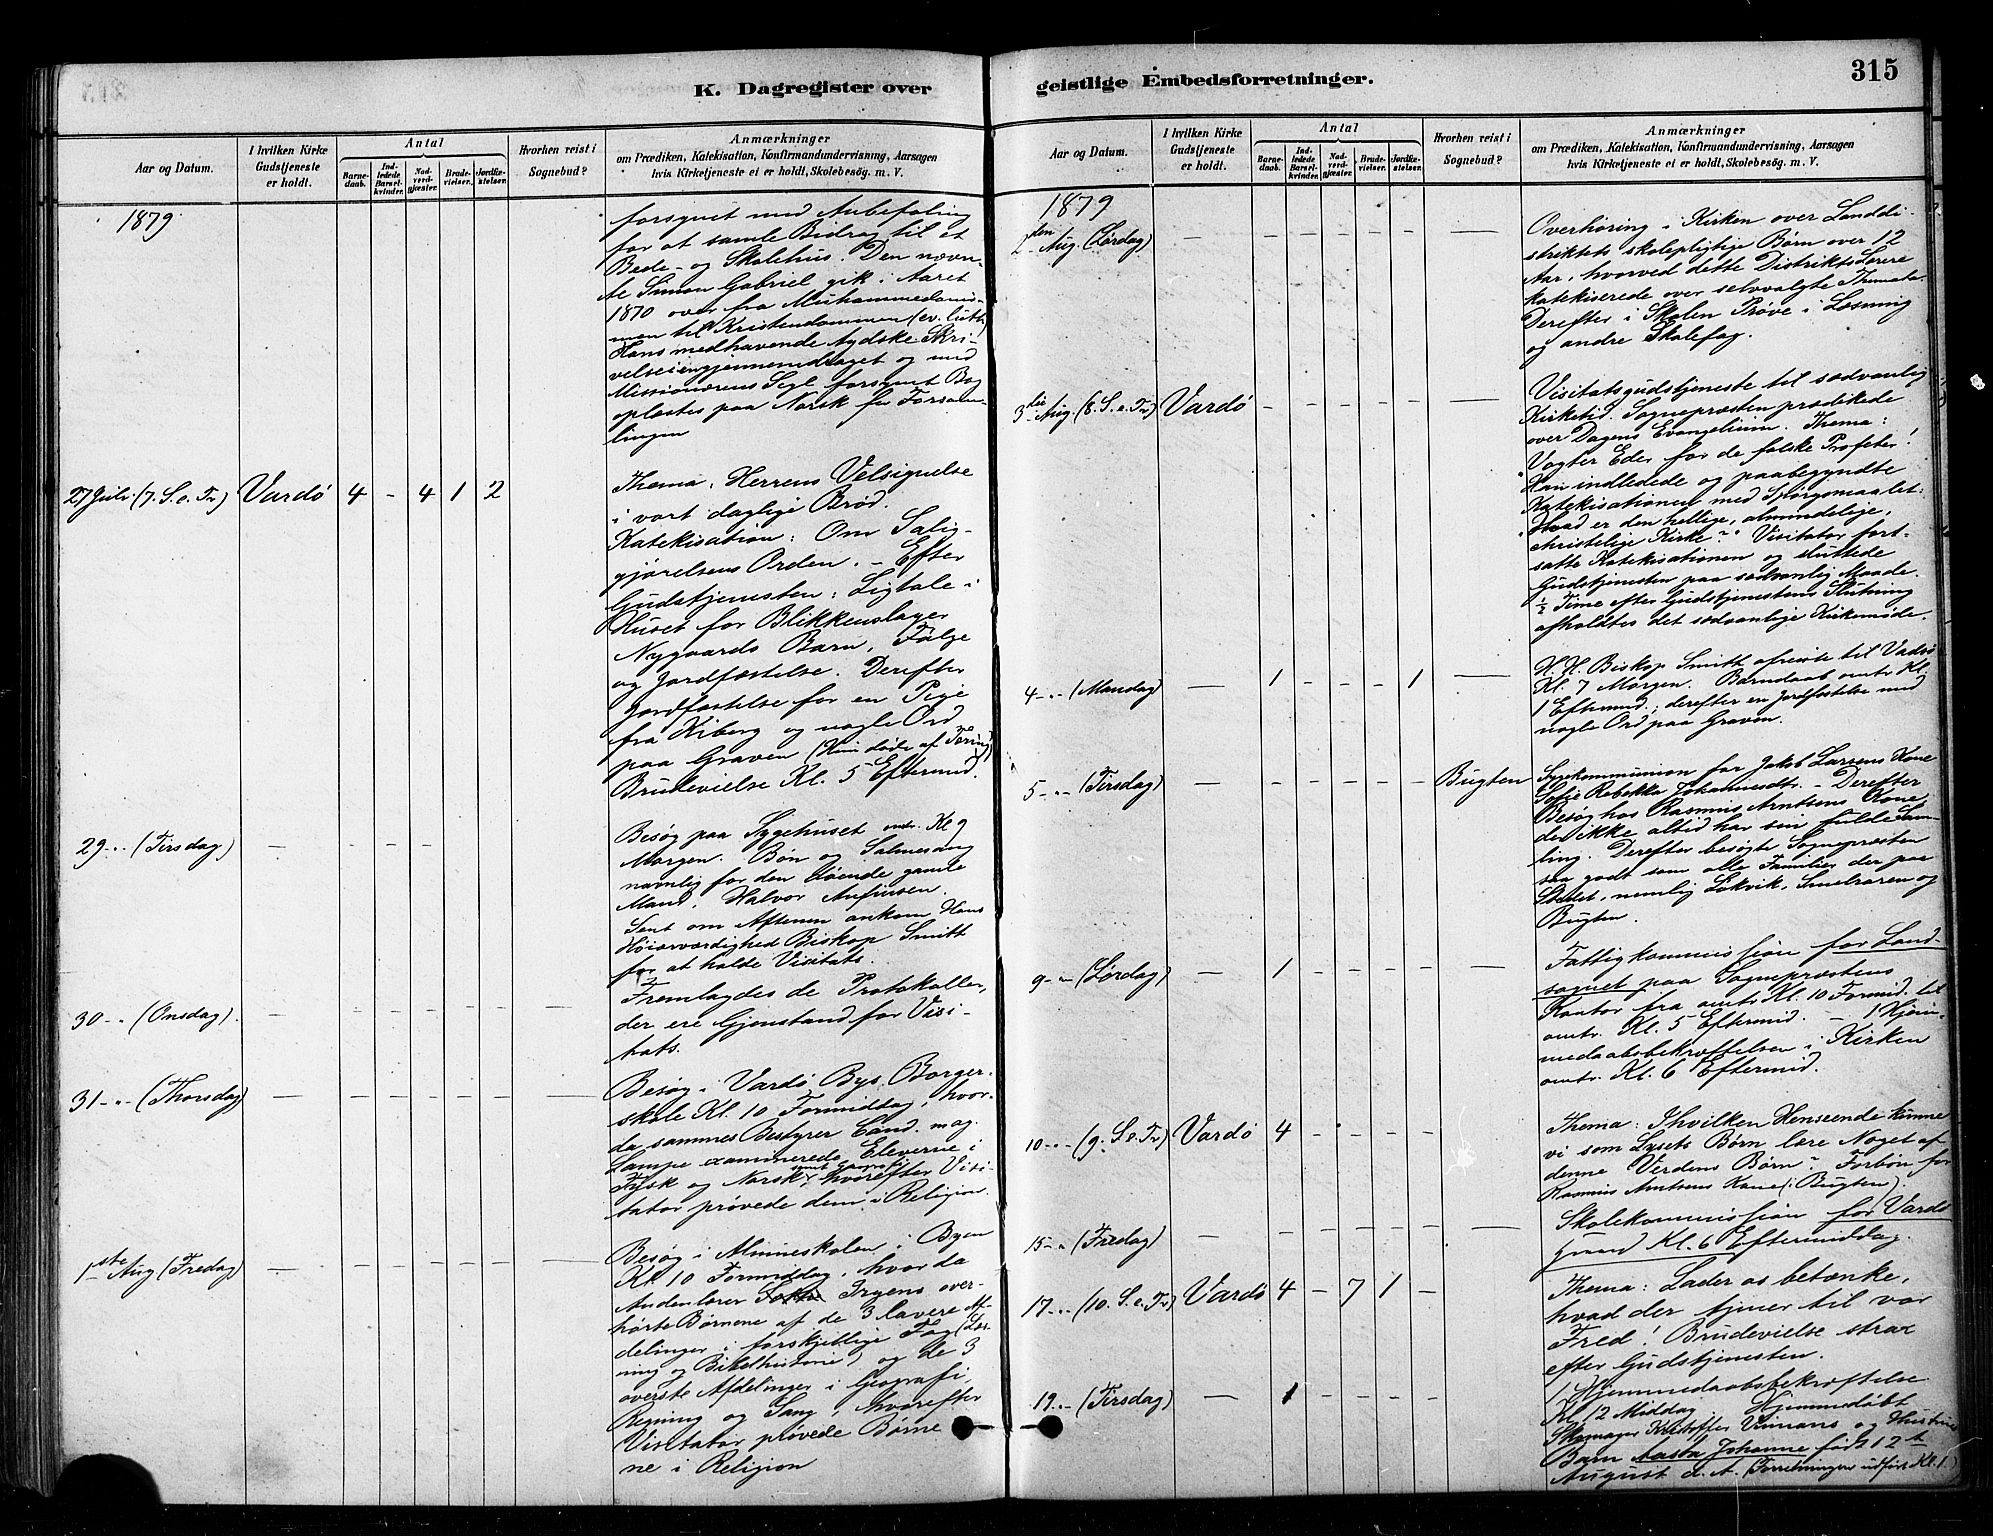 K. Dagregister over
Aar og Datum.
I hvilken Kirke
Gudstjeneste
er holdt.
Antal
Barne-
daab.
Ind-
ledede
Barsel-
kvinder.
Nad-
verd-
gjæster.
Brude-
vielser.
Jordfæ-
stelser.
Hvorhen reist i
Sognebud?
Anmærkninger
om Prædiken, Katekisation, Konfirmandundervisning, Aarsagen
hvis Kirketjeneste ei er holdt, Skolebesøg. m. V.
1879
forsynet med Anbefaling
for at samle Bidrag til et
Bede- og Skolehus. Den nævn-
te Simon Gabriel gik i Aaret
1870 over fra Muhammedanis-
men til Kristendommen (ev. luth)
Hans medhavende tydske Skri-
velse igjennemdraget og med
Missionærens Segl forsynet Bog
oplæstes paa Norsk for Forsam-
lingen
27 Juli (7. S. e. Tr) Vardø 4 - 4 1 2
Thema: Herrens Velsignelse
i vort daglige Brød.
Katekisation: Om Salig-
gjørelsens Orden. - Efter
Gudstjenesten: Ligtale i
Huset for Blikkenslager
Nygaards Barn, Følge
og Jordfæstelse. Derefter
Jordfæstelse for en Pige
fra Kiberg og nogle Ord
paa Graven (Hun døde af Tæring)
Brudevielse Kl. 5 Eftermid.
29 -"- (Tirsdag)
Besøg paa Sygehuset omtr. Kl 9
Morgen. Bøn og Salmesang
navnlig for den døende gamle
Mand, Halvor Anfinsen.
Sent om Aftenen ankom Hans
Høiærværdighed Biskop Smitt
for at holde Visitats.
30 -"- (Onsdag)
Fremlagdes de Protokoller,
der ere Gjenstand for Visi-
tats.
31 -"- (Thorsdag)
Besøg i Vardø Bys Borger-
skole Kl. 10 Formiddag, hvor-
da sammes Bestyrer Cand. mag.
Lampe examinerede Eleverne i
Tysk og Norsk samt Geografi, hvorefter Visi-
tator prøvede dem i Religion.
1ste Aug (Fredag)
Besøg i Almueskolen i Byen
Kl. 10 Formiddag, hvor da
Andenlærer Iryens over-
hørte Børnene af de 3 lavere Af-
delinger i forskjellige Fag (Læs-
ning og Bibelhistorie) og de 3
øverste Afdelinger i Geografi,
Regning og Sang, hvorefter
Visitator prøvede Børne
ne i Religion
geistlige Embedsforretninger.
315
Aar og Datum.
I hvilken Kirke
Gudstjeneste
er holdt.
Antal
Barne-
daab.
Ind-
ledede
Barsel-
kvinder.
Nad-
verd-
gjæster.
Brude-
vielser.
Jordfæ-
stelser.
Hvorhen reist i
Sognebud?
Anmærkninger
om Prædiken, Katekisation, Konfirmandundervisning, Aarsagen
hvis Kirketjeneste ei er holdt, Skolebesøg. m. V.
1879
2den Aug. (Lørdag)
Overhøring i Kirken over Landdi-
striktets skolepligtige Børn over 12
Aar, hvorved dette Distrikts Lærere
katekiserede over selvvalgte Themata.
Derefter i Skolen Prøve i Læsning
og andre Skolefag.
3die Aug. (8. S. e. Tr) Vardø
Visitatsgudstjeneste til sædvanlig
Kirketid. Sognepræsten prædikede
over Dagens Evangelium. Thema:
Vogter Eder for de falske Profeter!
Han indledede og paabegyndte
Katekisationen med Spørgsmaalet:
"Hvad er den hellige, almindelige,
christelige Kirke?" Visitator fort-
satte Katekisationen og sluttede
Gudstjenesten paa sædvanlig Maade.
½ Time efter Gudstjenestens Slutning
afholdtes det sædvanlige Kirkemøde.
4 -"- (Mandag) 1 - - - 1
H. H. Biskop Smitt afreiste til Vadsø
Kl. 7 Morgen. Barnedaab omtr. Kl.
1 Eftermid.; derefter en Jordfæstelse med
nogle Ord paa Graven.
5 -"- (Tirsdag) Bugten
Sygekommunion for Jakob Larsens Kone
Sofie Rebekka Johannesdtr. - Derefter
Besøg hos Rasmus Arntsens Kone
der ikke altid har sin fulde Sam-
ling. Derefter besøgte Sognepræsten
saa godt som alle Familier der paa
Stedet, nemlig Lokvik, Smelroren og
Bugten.
9 -"- (Lørdag) 1
Fattigkommission for Land-
sognet paa Sognepræstens
Kontor fra omtr. Kl. 10 Formid. til
omtr. Kl. 5 Eftermid. - 1 Hjem-
medaabsbekræftelsen i Kirken
omtr. Kl. 6 Eftermid.
10 -"- (9. S. e. Tr) Vardø 4
Thema: I hvilken Henseende kunne
vi som Lysets Børn lære Noget af
denne Verdens Børn? Forbøn for
Rasmus Arntsens Kone (i Bugten)
15 -"- (Fredag)
Skolekommission for Vardø
Kl. 6 Eftermiddag.
17 -"- (10. S. e. Tr) Vardø 4 - 7 1 -
Thema: Lader os betænke,
hvad der tjener til vor
Fred! Brudevielse strax
efter Gudstjenesten.
19 -"- (Tirsdag) 1
1 Hjemmedaabsbekræftelse
Kl. 12 Middag. Hjemmedøbt
Skomager Kristoffer Vimans og Hustrus
Barn Aasta Johanne født 12te
August d. A. (Forretningen udført Kl. 1)